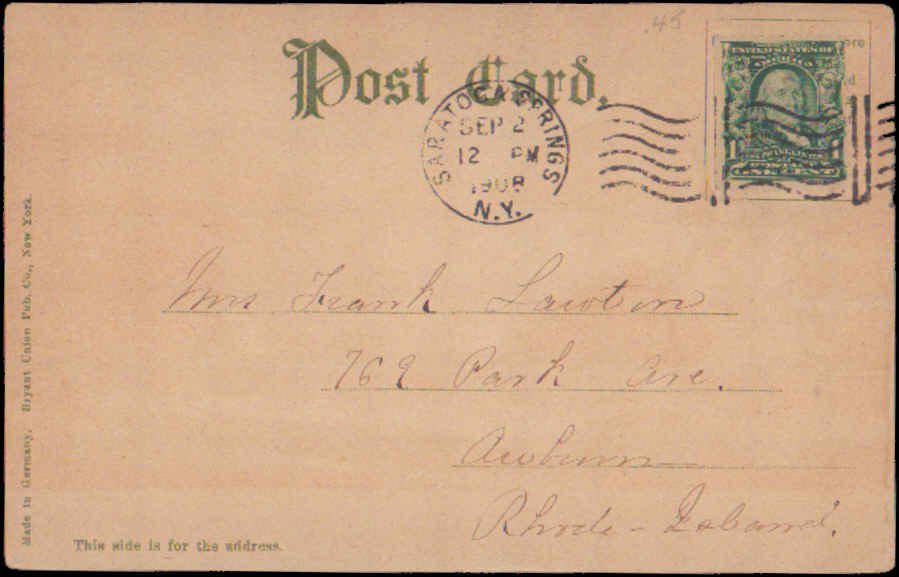 .45
Post Card.
SARATOGA SPRINGS
SEP 2
12 PM
1908
N.Y.
UNITED STATES OF
AMERICA
1 1
ONE CENT
Mrs Frank Lawton
762 Park Ave.
Auburn
Rhode-Island.
This side is for the address.
Made in Germany. Bryant Union Pub. Co., New York.